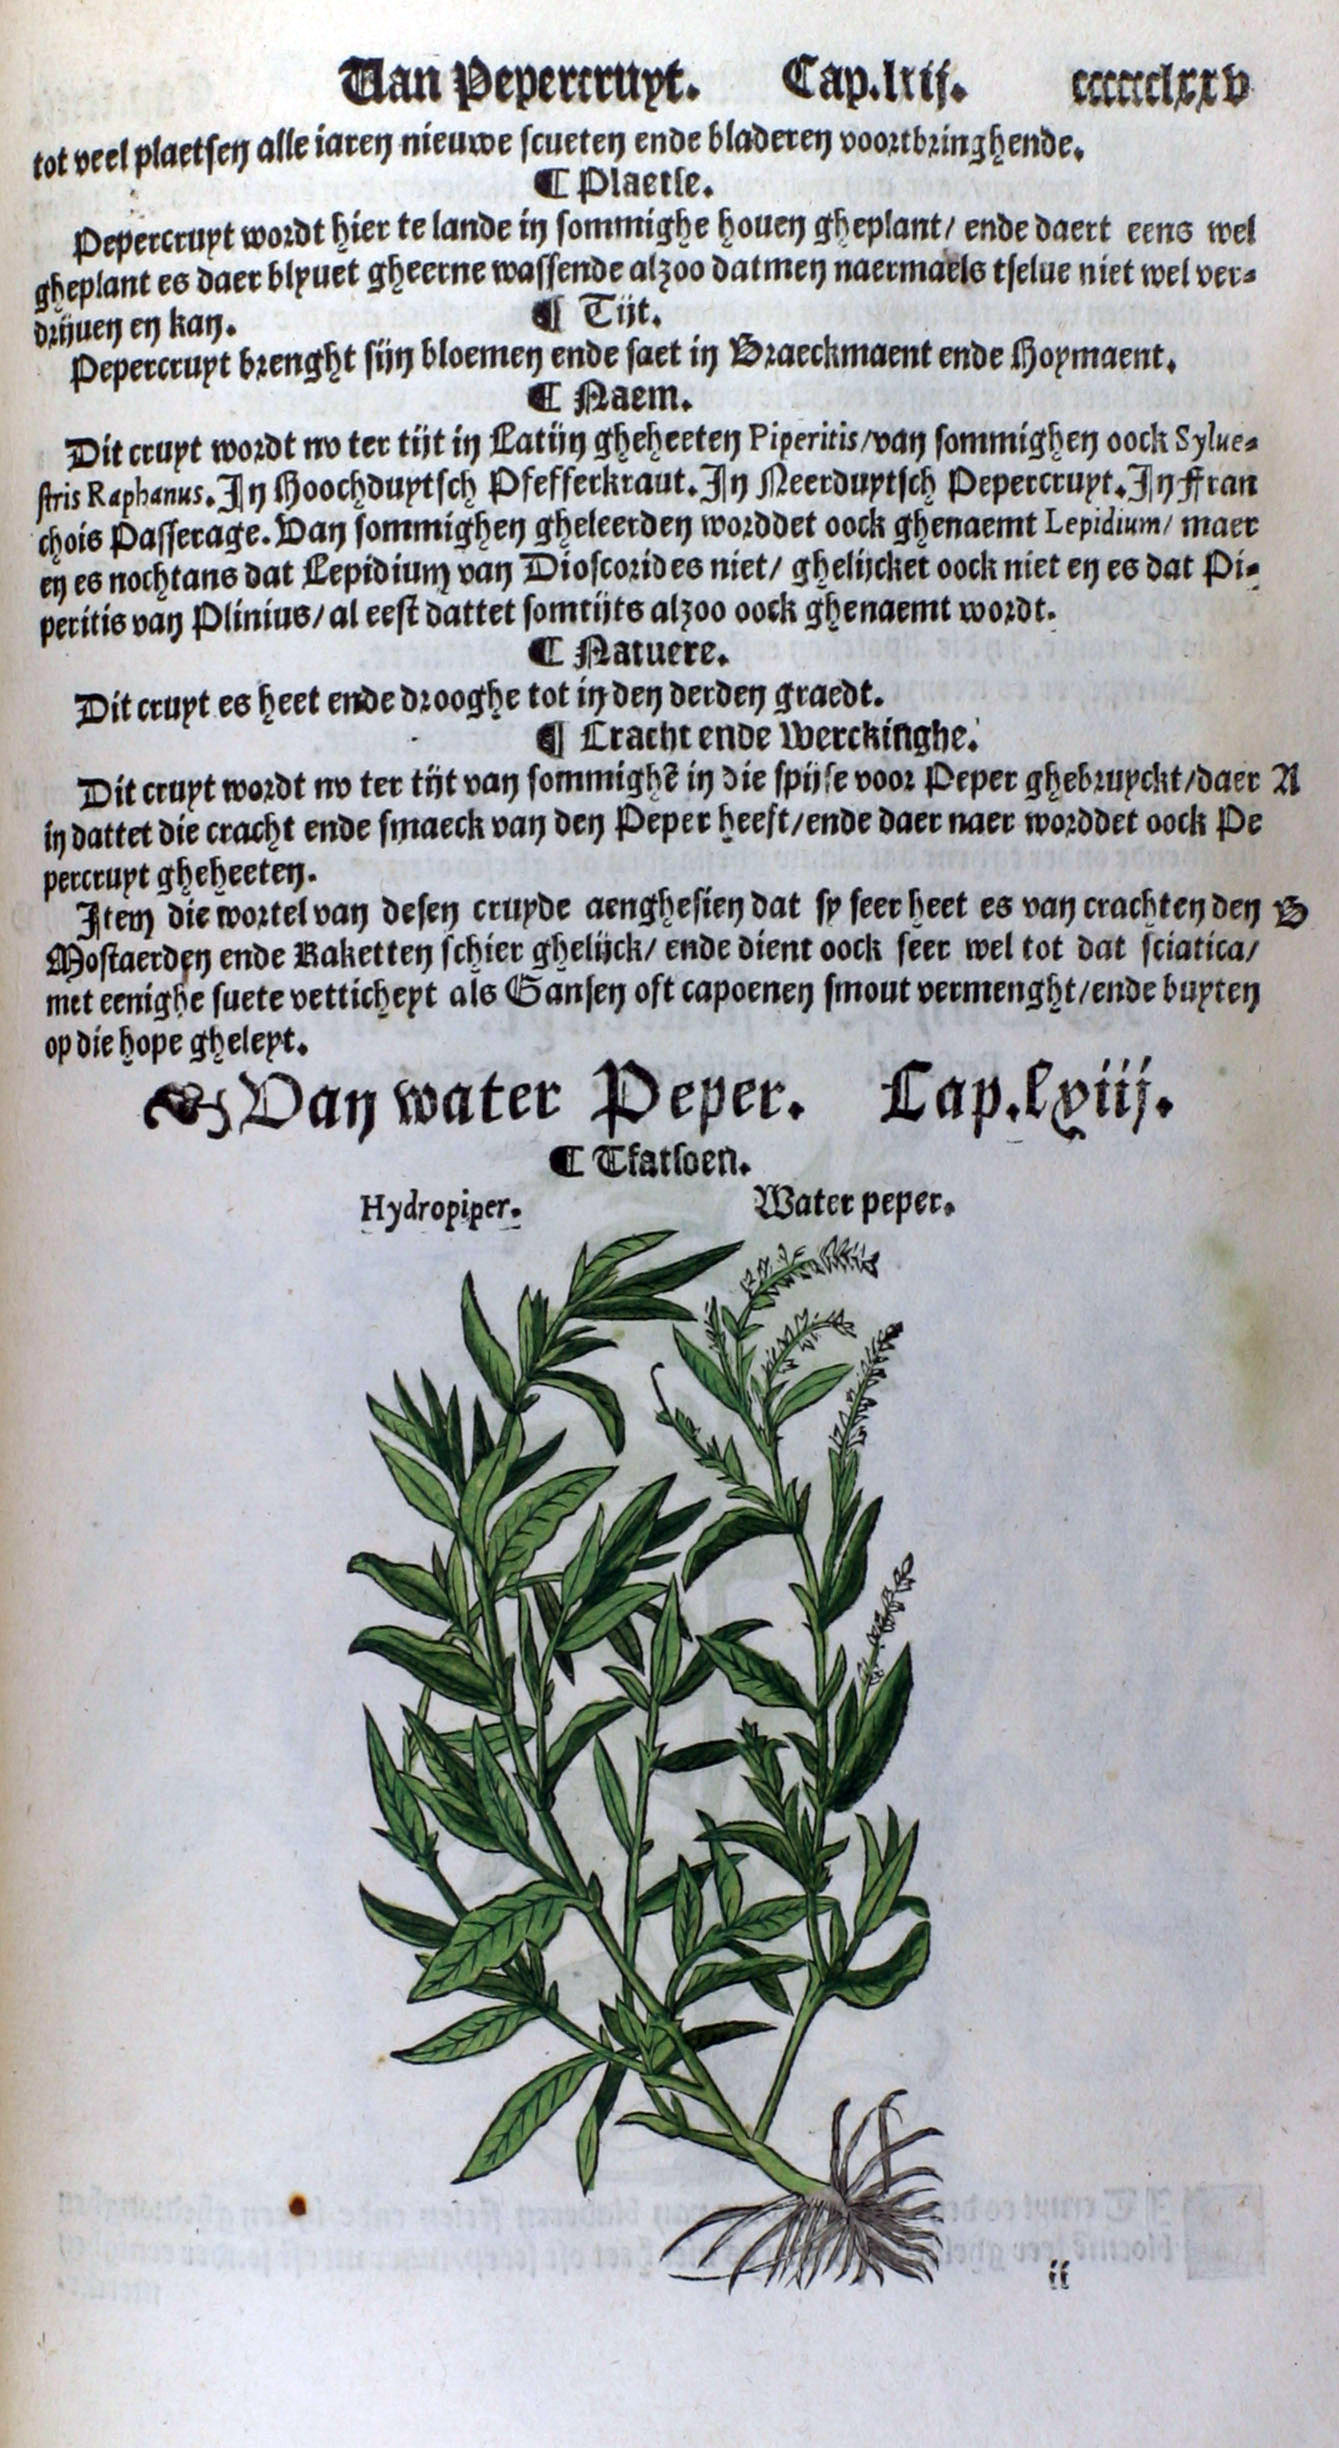 Van Pepercruyt. Cap.lxij. ccccclxxv
tot veel plaetsen alle iaren nieuwe scueten ende bladeren voortbringhende.
¶ Plaetse.
Pepercruyt wordt hier te lande in sommighe houen gheplant/ ende daert eens wel
gheplant es daer blyuet gheerne wassende alzoo datmen naermaels tselue niet wel ver-
drijuen en kan.
¶ Tijt.
Pepercruyt brenght sijn bloemen ende saet in Braeckmaent ende Hoymaent.
¶ Naem.
Dit cruyt wordt nv ter tijt in Latijn gheheeten Piperitis/van sommighen oock Sylue-
stris Raphanus. In Hoochduytsch Pfefferkraut. In Neerduytsch Pepercruyt. In Fran
chois Passerage. Van sommighen gheleerden worddet oock ghenaemt Lepidium/ maer
en es nochtans dat Lepidium van Dioscorides niet/ ghelijcket oock niet en es dat Pi-
peritis van Plinius/ al eest dattet somtijts alzoo oock ghenaemt wordt.
¶ Natuere.
Dit cruyt es heet ende drooghe tot in den derden graedt.
¶ Cracht ende Werckinghe.
Dit cruyt wordt nv ter tijt van sommighē in die spijse voor Peper ghebruyckt/daer A
in dattet die cracht ende smaeck van den Peper heeft/ende daer naer worddet oock Pe
percruyt gheheeten.
Item die wortel van desen cruyde aenghesien dat sy seer heet es van crachten den B
Mostaerden ende Raketten schier ghelijck/ ende dient oock seer wel tot dat sciatica/
met eenighe suete vetticheyt als Gansen oft capoenen smout vermenght/ende buyten
op die hope gheleyt.
Van water Peper. Cap.lxiij.
¶ Tfatsoen.
Hydropiper. Water peper.
ii